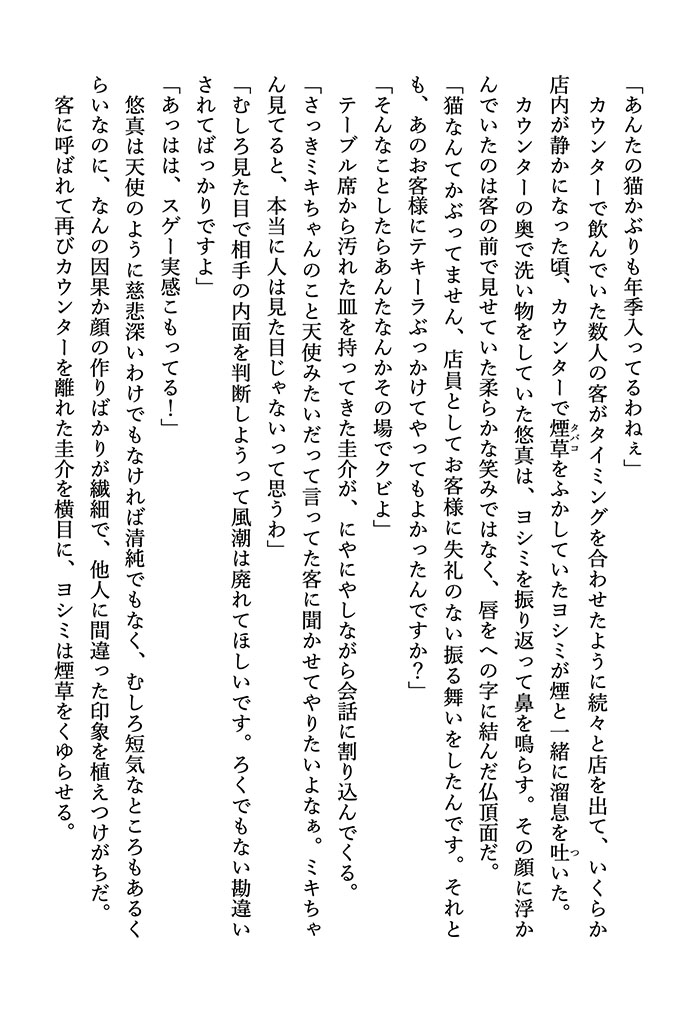 「あんたの猫かぶりも年季入ってるわねぇ」
　カウンターで飲んでいた数人の客がタイミングを合わせたように続々と店を出て、いくらか
店内が静かになった頃、カウンターで煙草をふかしていたヨシミが煙と一緒に溜息を吐いた。
　カウンターの奥で洗い物をしていた悠真は、ヨシミを振り返って鼻を鳴らす。その顔に浮か
んでいたのは客の前で見せていた柔らかな笑みではなく、唇をへの字に結んだ仏頂面だ。
「猫なんてかぶってません、店員としてお客様に失礼のない振る舞いをしたんです。それと
も、あのお客様にテキーラぶっかけてやってもよかったんですか？」
「そんなことしたらあんたなんかその場でクビよ」
　テーブル席から汚れた皿を持ってきた圭介が、にやにやしながら会話に割り込んでくる。
「さっきミキちゃんのこと天使みたいだって言ってた客に聞かせてやりたいよなぁ。ミキちゃ
ん見てると、本当に人は見た目じゃないって思うわ」
「むしろ見た目で相手の内面を判断しようって風潮は廃れてほしいです。ろくでもない勘違い
されてばっかりですよ」
「あっはは、スゲー実感こもってる！」
　悠真は天使のように慈悲深いわけでもなければ清純でもなく、むしろ短気なところもあるく
らいなのに、なんの因果か顔の作りばかりが繊細で、他人に間違った印象を植えつけがちだ。
　客に呼ばれて再びカウンターを離れた圭介を横目に、ヨシミは煙草をくゆらせる。
タバコ
つ